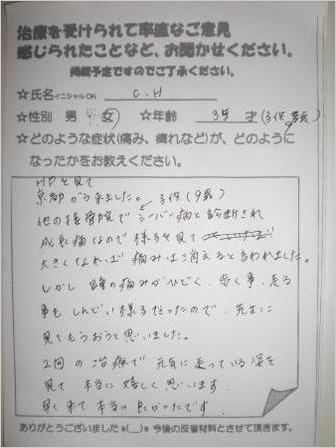 治療を受けられて率直なご意見
感じられたことなど、お聞かせください。
掲載予定ですのでご了承ください。
☆氏名イニシャルOK C.H
☆性別 男 女 ☆年齢 35 才(子供 9歳)
☆どのような症状(痛み、痺れなど)が、どのように
なったかをお教えください。
HPを見て
京都から来ました。子供(9歳)
他の接骨院でシーバー病と診断され
成長痛なので様子を見て
大きくなれば痛みは消えると言われました。
しかし 踵の痛みがひどく、歩く事、走る
事もしんどい様子だったので、先生に
見てもらおうと思いました。
2回の治療で 元気に走っている姿を
見て 本当に嬉しく思います
見て来て本当に良かったです
ありがとうございました m(__)m 今後の反省材料とさせて頂きます。